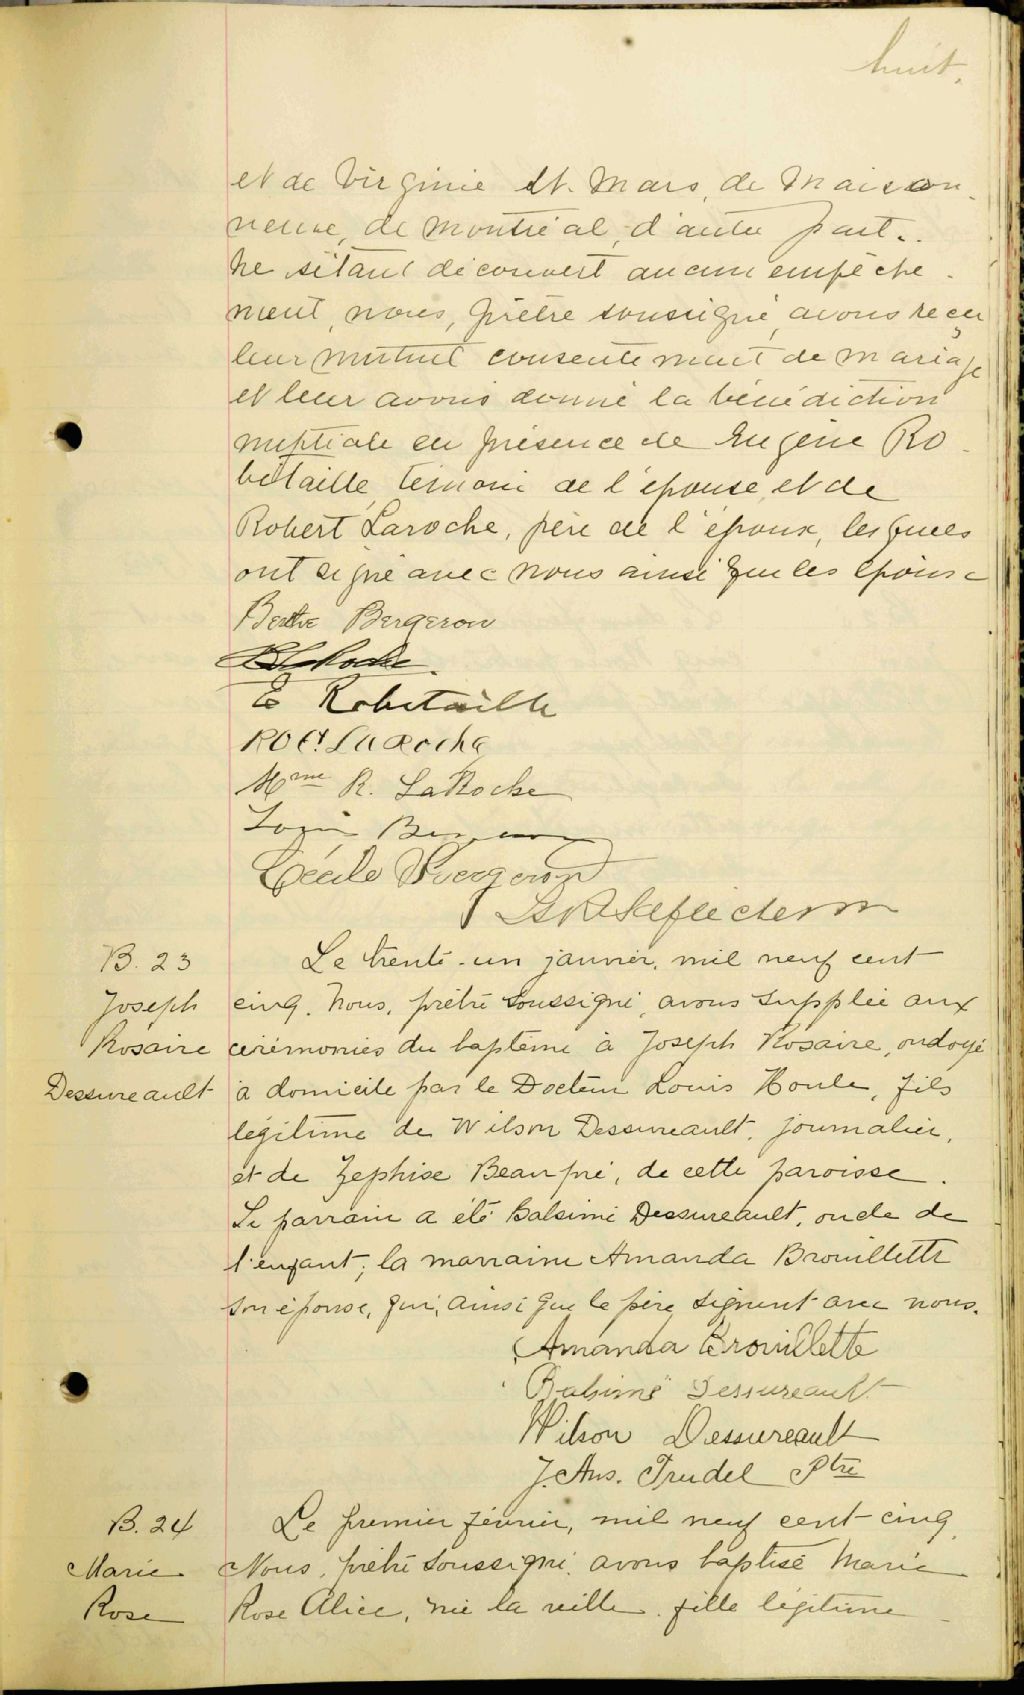 huit.
et de Virginie St. Mars, de Maison-
neuve, de Montréal, d'autre part..
Ne s'étant découvert aucun empêche-
ment, nous, prêtre soussigné, avons reçu
leur mutuel consentement de mariage
et leur avons donné la bénédiction
nuptiale en présence de Eugène Ro-
bitaille, témoin de l'épouse, et de
Robert Laroche, père de l'époux, lesquels
ont signé avec nous ainsi que les époux
Berthe Bergeron
LaRoche.
E Robitaille
Rot. LaRoche
Mme R. LaRoche
Bergeron
Cécile Bergeron
B. 23
Joseph
Rosaire
Dessureault
Le trente-un janvier, mil neuf cent
cinq. Nous, prêtre soussigné, avons supplée aux
cérémonies du baptême à Joseph Rosaire, ondoyé
à domicile par le Docteur Louis Houle, fils
légitime de Wilson Dessureault, journalier,
et de Zephise Beaupré, de cette paroisse.
Le parrain a été Balsimé Dessureault, oncle de
l'enfant; la marraine Amanda Brouillette
son épouse, qui, ainsi que le père, signent avec nous.
Amanda Brouillette
Balsimé Dessureault
Wilson Dessureault
J. Ans. Trudel Ptre
B. 24
Marie
Rose
Le premier février, mil neuf cent-cinq,
Nous, prêtre soussigné, avons baptisé Marie
Rose Alice, née la veille, fille légitime